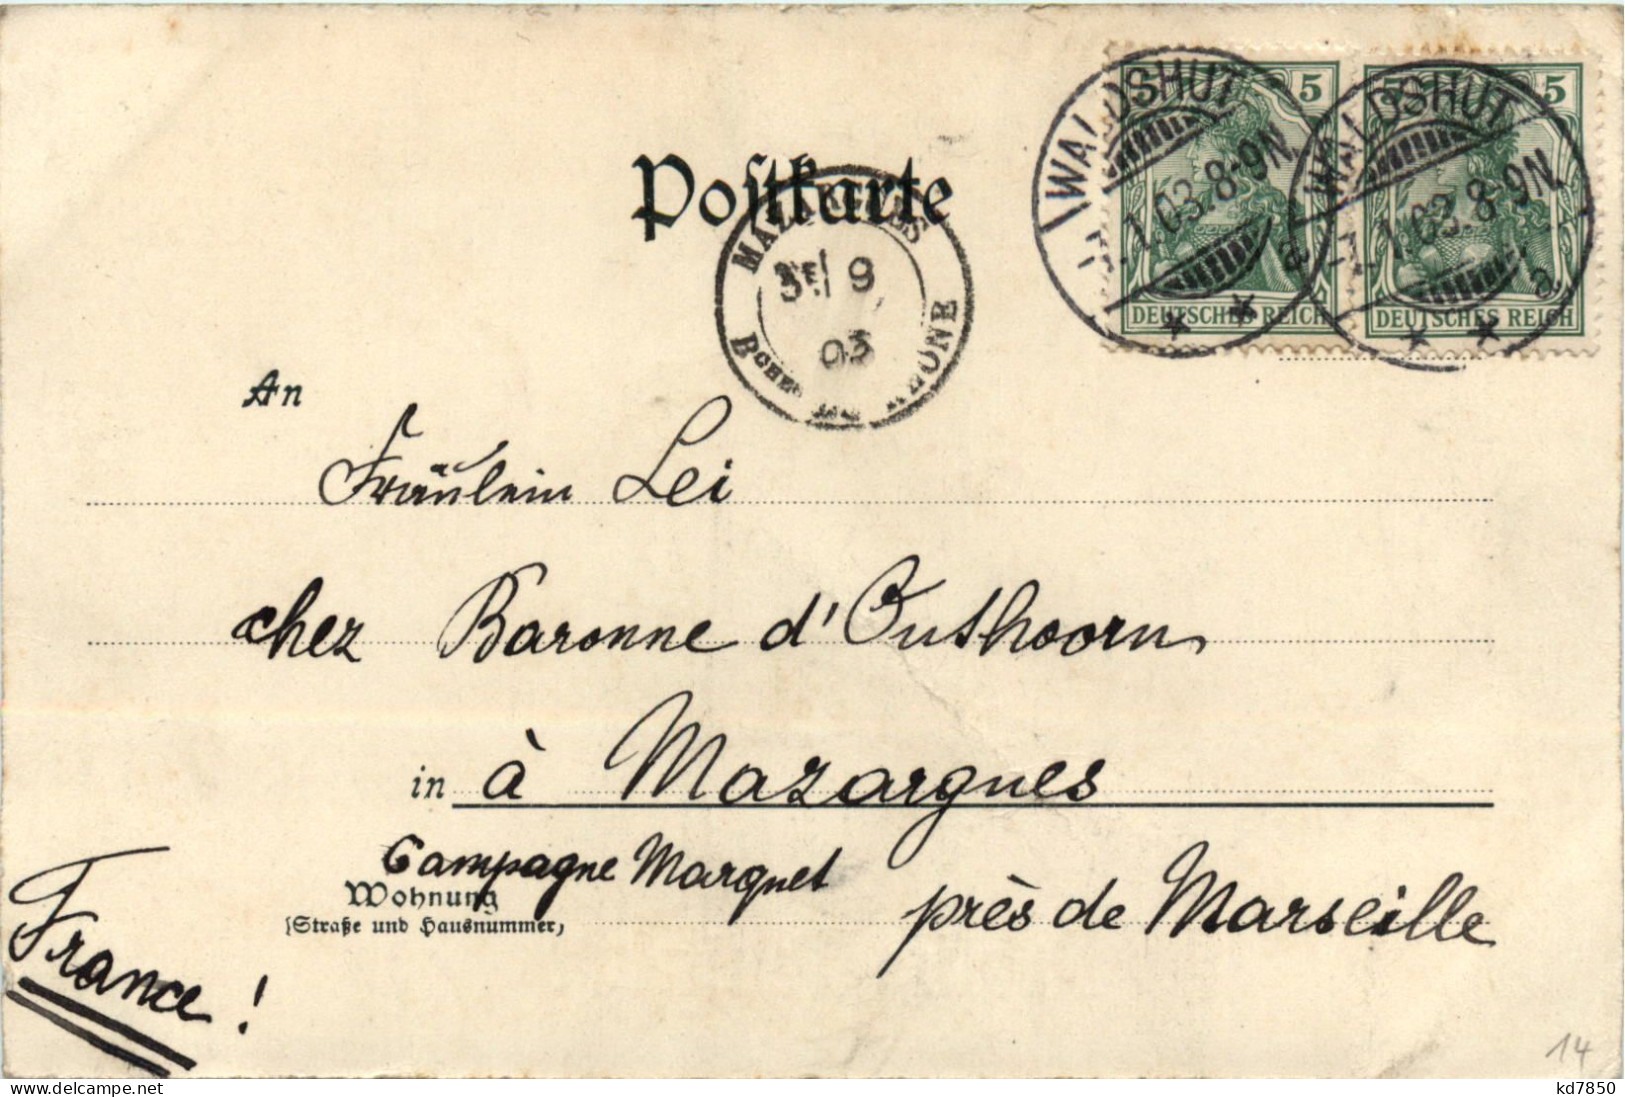 5 5
WALDSHUT WALDSHUT
1.03.8-9N. 1.03.8-9N.
a a
DEUTSCHES REICH DEUTSCHES REICH
Postkarte
MAZARGUES
9
03
BCHES DU RHONE
An
Fräulein Lei
chez Baronne d'Outhoorn
in à Mazargues
Campagne Marquet
Wohnung
(Straße und Hausnummer)
près de Marseille
France!
14
kd7850